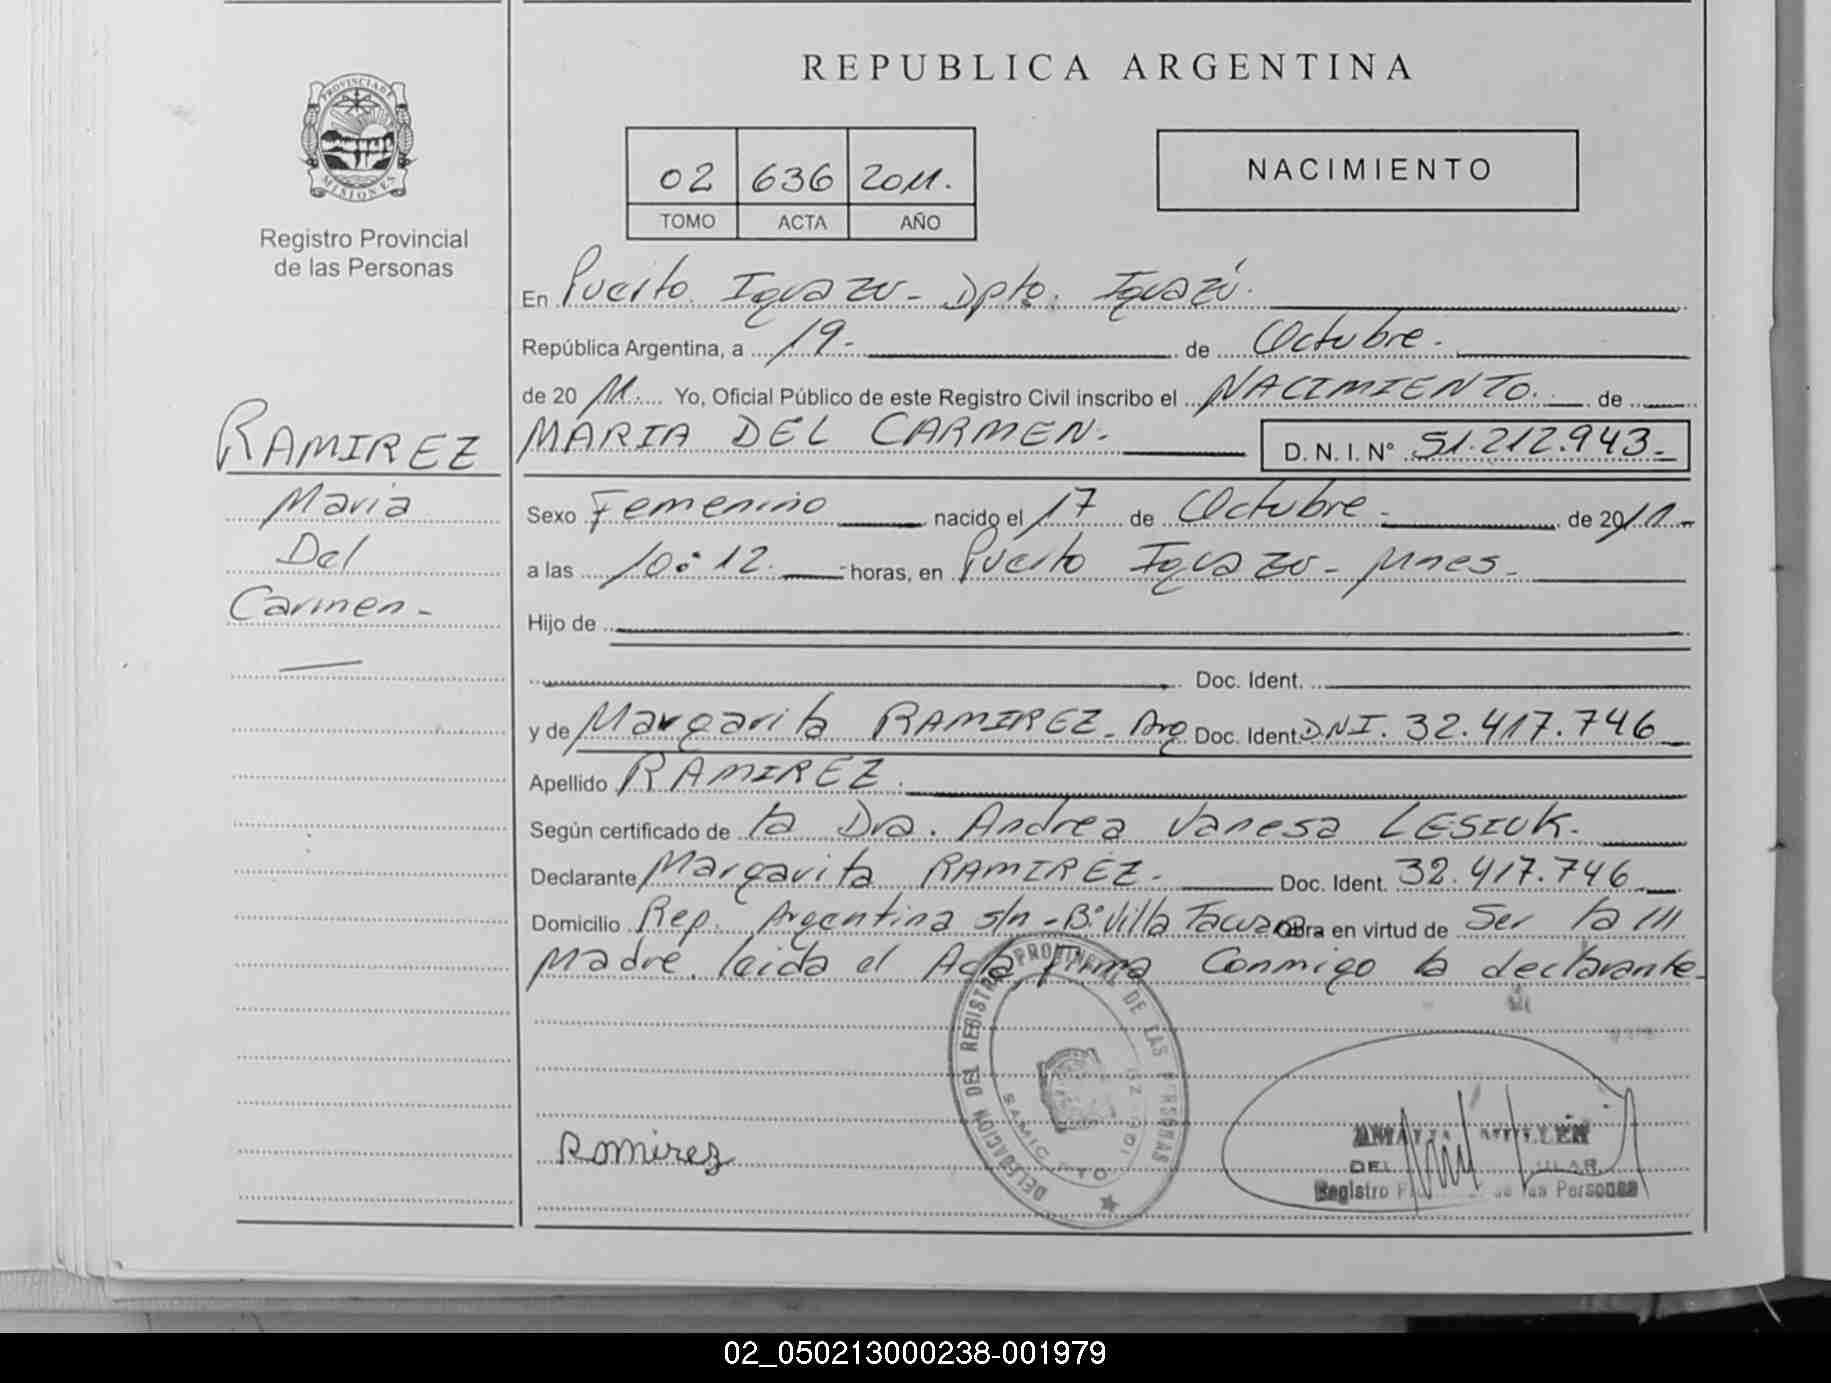 REPUBLICA ARGENTINA
PROVINCIA DE
MISIONES
Registro Provincial
de las Personas
02 636 2011.
TOMO ACTA AÑO
NACIMIENTO
En Puerto Iguazu - Dpto. Iguazú.
República Argentina, a 19. de Octubre.
de 2011. Yo, Oficial Público de este Registro Civil inscribo el NACIMIENTO. de
RAMIREZ
Maria
Del
Carmen-
MARIA DEL CARMEN. D. N. I. Nº 51.212.943.-
Sexo Femenino nacido el 17 de Octubre. de 2011.-
a las 10:12. horas, en Puerto Iguazu - Mnes.
Hijo de
Doc. Ident.
y de Margarita RAMIREZ. Arg Doc. Ident. DNI. 32.417.746
Apellido RAMIREZ.
Según certificado de la Dra. Andrea Vanesa LESIUK.
Declarante Margarita RAMIREZ. Doc. Ident. 32.417.746
Domicilio Rep. Argentina s/n - Bº Villa Obra en virtud de Ser la
Madre. leida el Acta, Firma Conmigo la declarante.
DELEGACION DEL REGISTRO PROVINCIAL DE LAS PERSONAS
Ramirez
Registro de las Personas
02_050213000238-001979